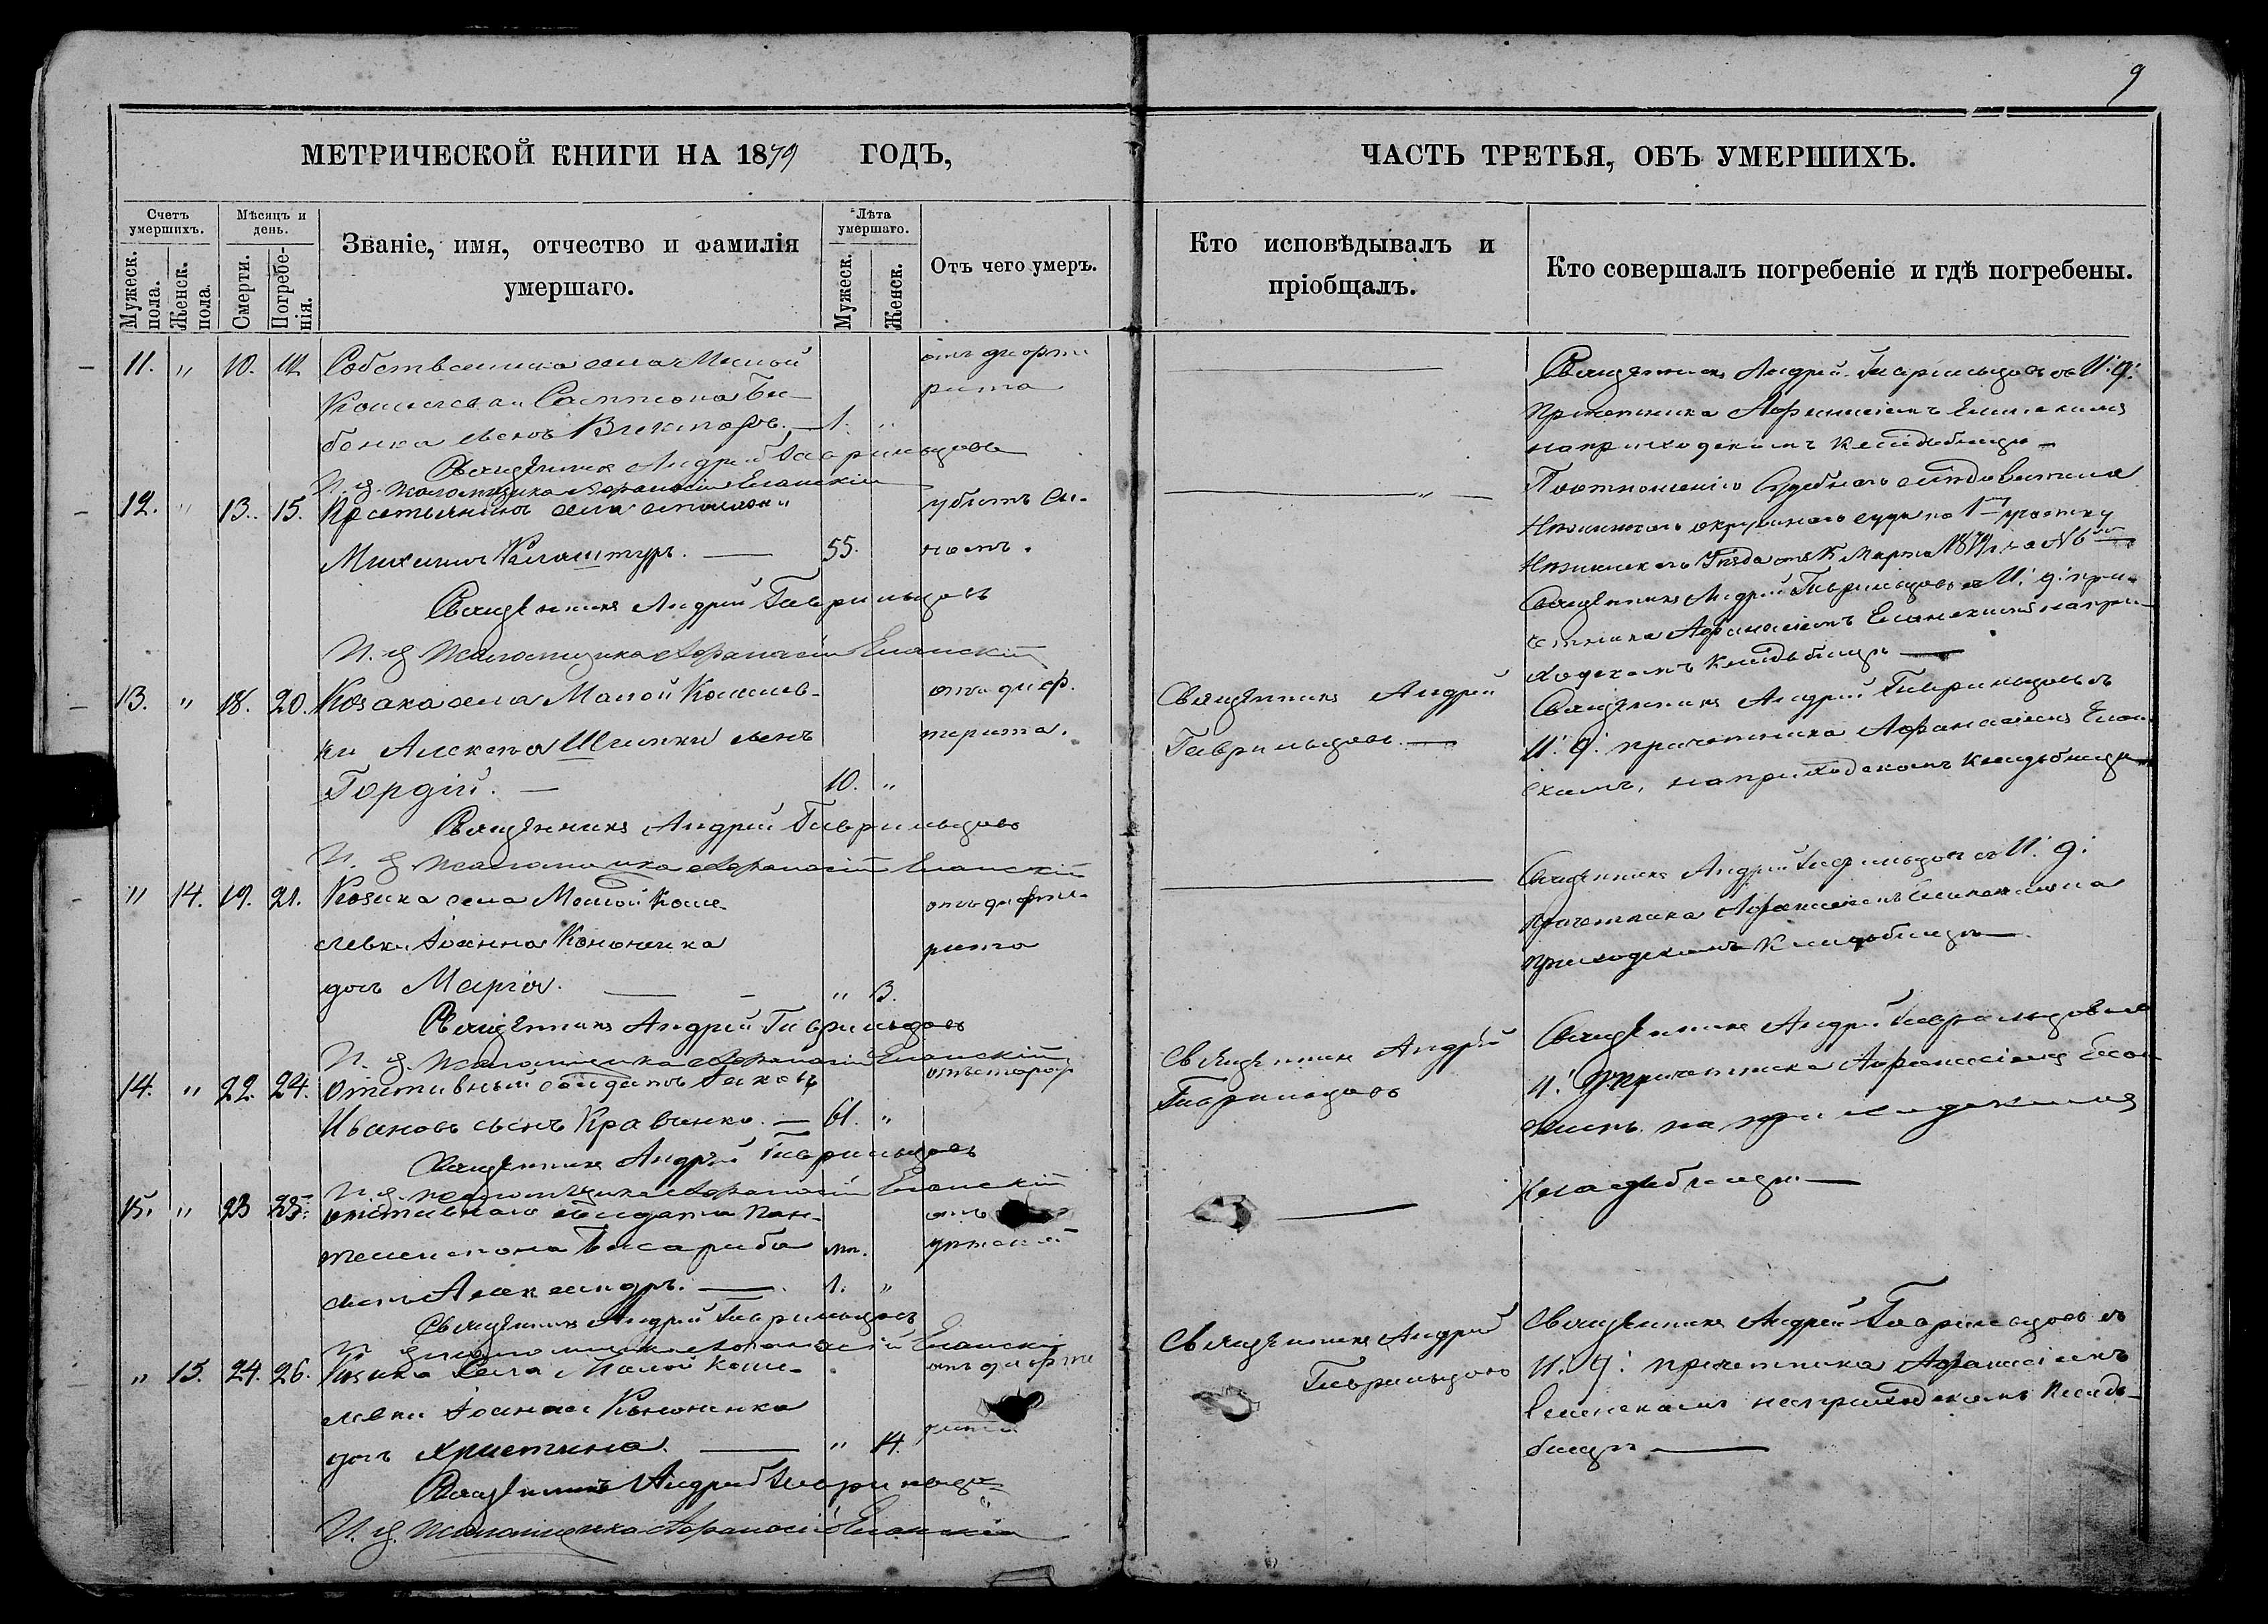 9
МЕТРИЧЕСКОЙ КНИГИ НА 1879 ГОДЪ,
Счетъ умершихъ.
Мужеск. пола.
Женск. пола.
Мѣсяцъ и день.
Смерти.
Погребенія.
Званіе, имя, отчество и фамилія
умершаго.
Лѣта умершаго.
Мужеск.
Женск.
Отъ чего умеръ.
11. " 10. 12. Собственника села Малой отъ дифте
рита
сынъ Викторъ. — 1. "
Священникъ Андрей Гаврильцовъ
И. д. Псаломщика Афанасій Еланскій
12. " 13. 15. Крестьянинъ села убитъ
Михаилъ 55.
Священникъ Андрей Гаврильцовъ
И. д. Псаломщика Афанасій Еланскій
13. " 18. 20. Козака села Малой Кошелев- отъ диф
ки Алексѣя сынъ терита.
Гордій. — 10. "
Священникъ Андрей Гаврильцовъ
И. д. Псаломщика Афанасій Еланскій
" 14. 19. 21. Козака села Малой Коше- отъ дифте-
левки Іоанна Кононенка рита
дочь Марія. — " 3.
Священникъ Андрей Гаврильцовъ
И. д. Псаломщика Афанасій Еланскій
14. " 22. 24. Отставный солдатъ Іаковъ
Ивановъ сынъ Кравченко. — 61. "
Священникъ Андрей Гаврильцовъ
И. д. Псаломщика Афанасій Еланскій
15. " 23 25. Отставнаго солдата Пан- отъ
телеимона
сынъ Александръ. — 1. "
Священникъ Андрей Гаврильцовъ
И. д. Псаломщика Афанасій Еланскій
" 15. 24. 26. Козака села Малой Коше- отъ дифте
левки Іоанна Кононенка
дочь Христина. — " 14. рита
Священникъ Андрей
И. д. Псаломщика Афанасій Еланскій
ЧАСТЬ ТРЕТЬЯ, ОБЪ УМЕРШИХЪ.
Кто исповѣдывалъ и
пріобщалъ.
Кто совершалъ погребеніе и гдѣ погребены.
Священникъ Андрей Гаврильцовъ съ И. д.
Причетника Афанасіемъ Еланскимъ
на приходскомъ кладбищѣ —
По отношенію Судебнаго слѣдователя
Нѣжинскаго окружнаго суда по 1 участку
Нѣжинскаго Уѣзда отъ Марта 1879 г. за №
Священникъ Андрей Гаврильцовъ съ И. д. при-
четника Афанасіемъ Еланскимъ на при-
ходскомъ кладбищѣ —
Священникъ Андрей
Гаврильцовъ. —
Священникъ Андрей Гаврильцовъ съ
И. д. причетника Афанасіемъ Елан
скимъ, на приходскомъ кладбищѣ
Священникъ Андрей Гаврильцовъ съ И. д.
причетника Афанасіемъ Еланскимъ на
приходскомъ кладбищѣ —
Священникъ Андрей
Гаврильцовъ
Священникъ Андрей Гаврильцовъ съ
И. д. причетника Афанасіемъ Елан
скимъ на приходскомъ
кладбищѣ —
Священникъ Андрей
Гаврильцовъ
Священникъ Андрей Гаврильцовъ съ
И. д. причетника Афанасіемъ
Еланскимъ на приходскомъ клад-
бищѣ —